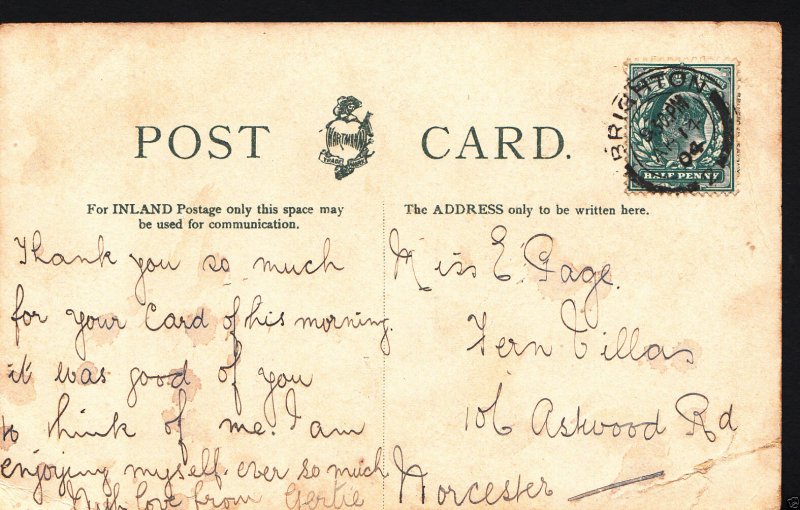 POST CARD.
HARTMANN
TRADE MARK
BRIGHTON
04
HALF PENNY
For INLAND Postage only this space may
be used for communication.
The ADDRESS only to be written here.
Thank you so much
for your Card of this morning.
it was good of you
to think of me. I am
enjoying myself ever so much
With love from Gertie
Miss E. Page.
Fern Villas
106 Astwood Rd
Worcester